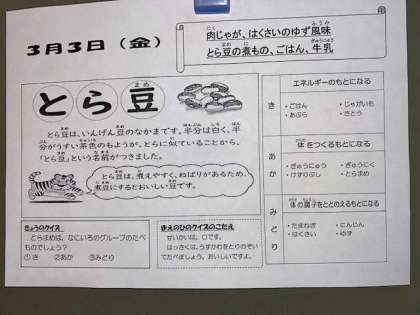 3月3日（金）
肉じゃが、はくさいのゆず風味
とら豆の煮もの、ごはん、牛乳
とら豆
とら豆は、いんげん豆のなかまです。半分は白く、半
分がうすい茶色のもようが、とらに似ていることから、
「とら豆」という名前がつきました。
とら豆は、煮えやすく、ねばりがあるため、
煮豆にするとおいしい豆です。
きょうのクイズ
とらまめは、なにいろのグループのたべ
ものでしょう？
①き　②あか　③みどり
まえのひのクイズのこたえ
せいかいは、○です。
はっさくは、うすかわをとりのぞい
てたべましょう。おいしいですよ。
エネルギーのもとになる
き
・ごはん　・じゃがいも
・あぶら　・さとう
体をつくるもとになる
あか
・ぎゅうにゅう　・ぎゅうにく
・けずりぶし　・とらまめ
体の調子をととのえるもとになる
みどり
・たまねぎ　・にんじん
・はくさい　・ゆず